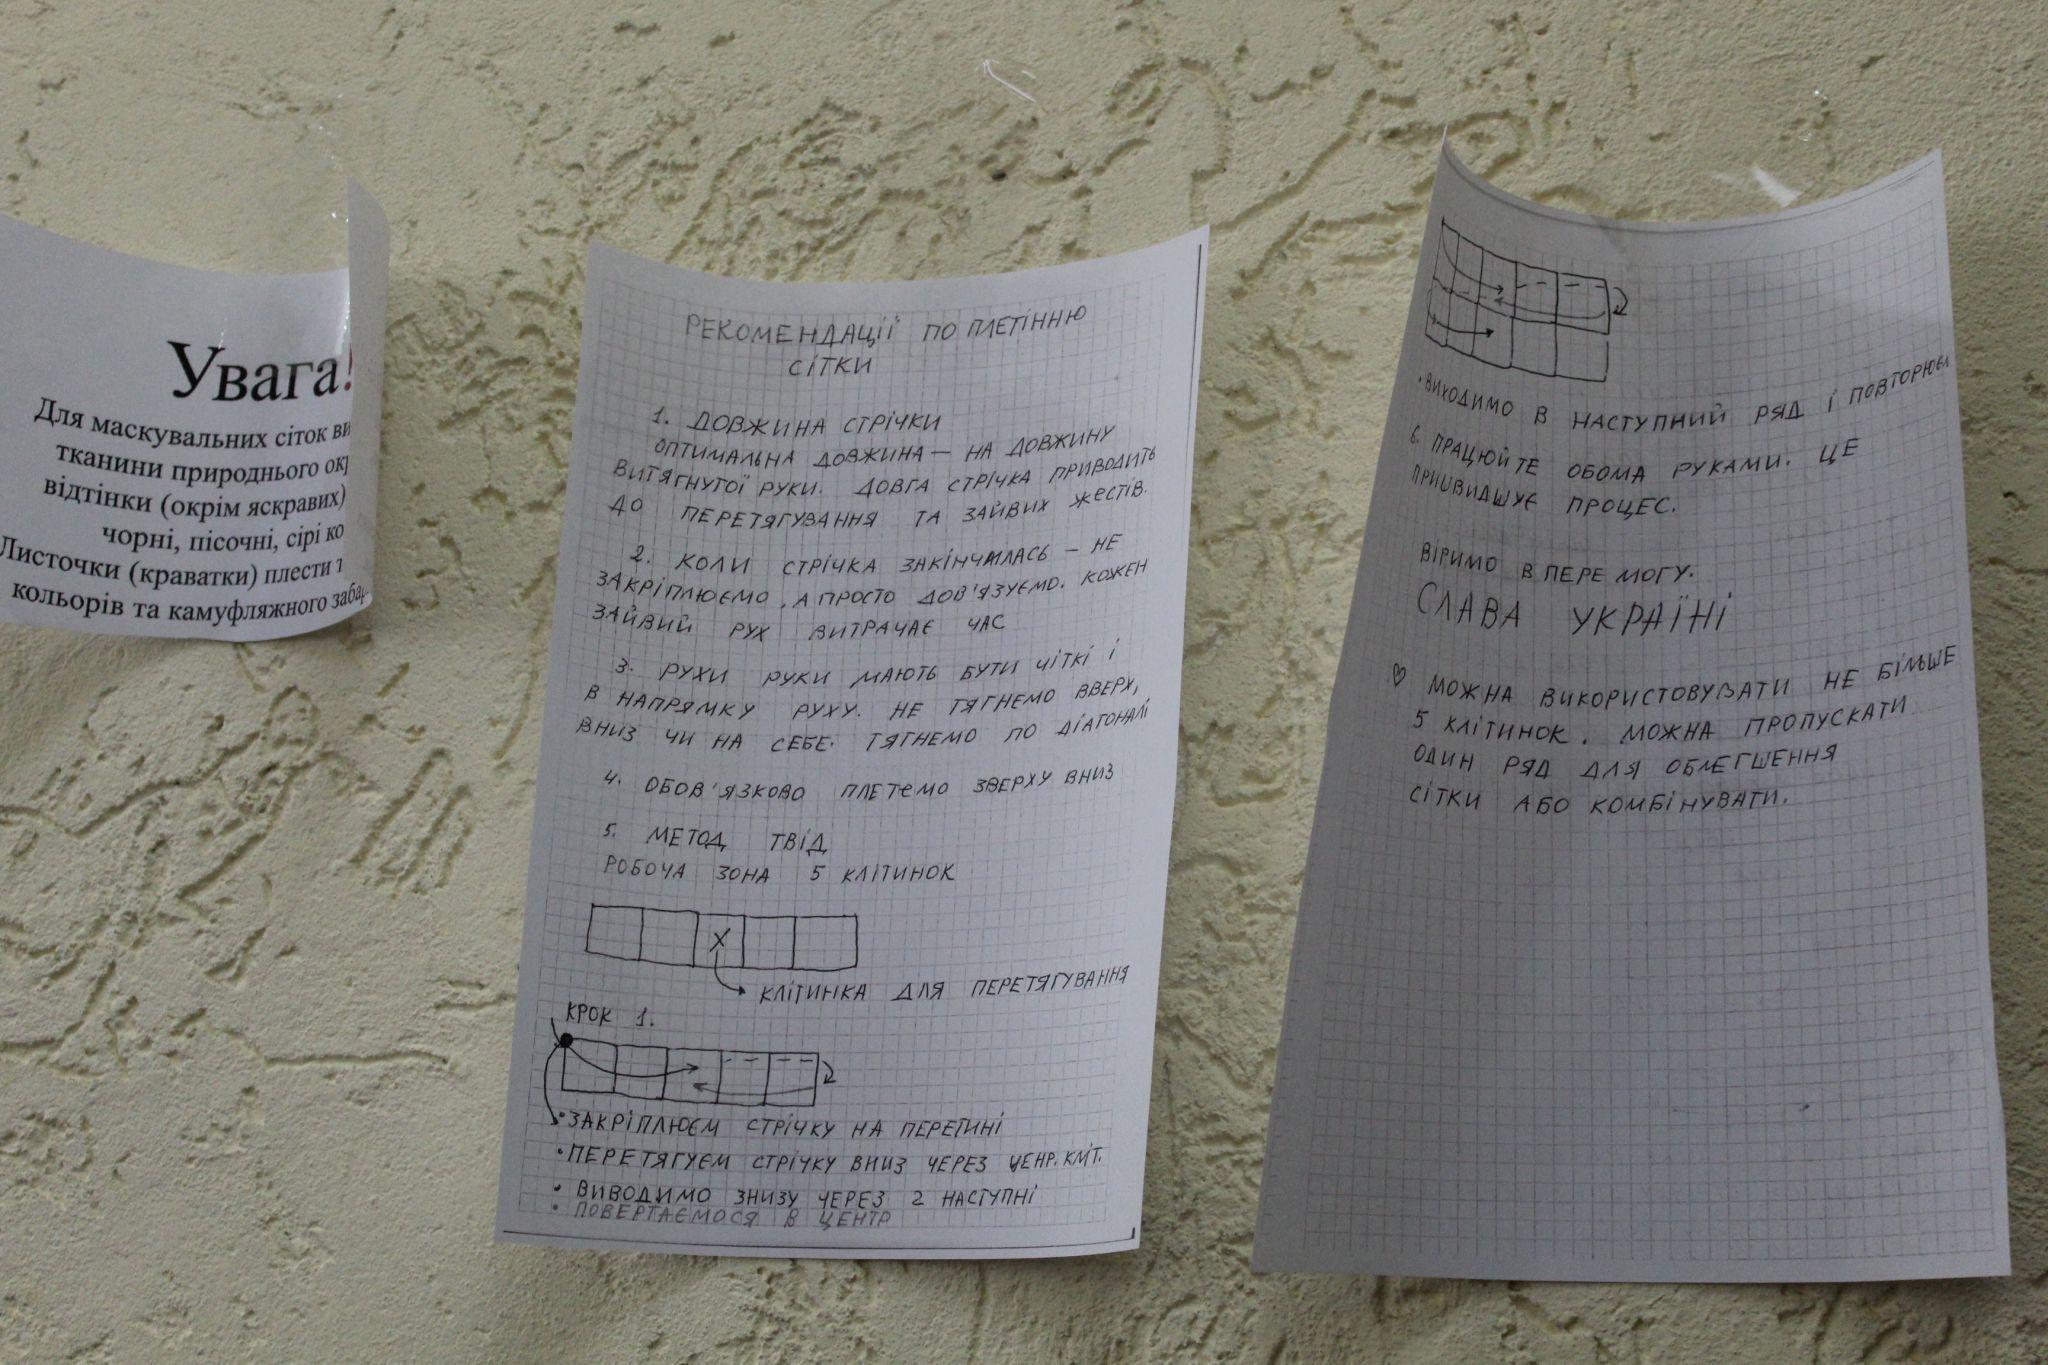 Увага!
Для маскувальних сіток ви
тканини природнього ок
відтінки (окрім яскравих)
чорні, пісочні, сірі ко
Листочки (краватки) плести т
кольорів та камуфляжного забар
РЕКОМЕНДАЦІЇ ПО ПЛЕТІННЮ
СІТКИ
1. ДОВЖИНА СТРІЧКИ
ОПТИМАЛЬНА ДОВЖИНА — НА ДОВЖИНУ
ВИТЯГНУТОЇ РУКИ. ДОВГА СТРІЧКА ПРИВОДИТЬ
ДО ПЕРЕТЯГУВАННЯ ТА ЗАЙВИХ ЖЕСТІВ.
2. КОЛИ СТРІЧКА ЗАКІНЧИЛАСЬ — НЕ
ЗАКРІПЛЮЄМО, А ПРОСТО ДОВ'ЯЗУЄМО. КОЖЕН
ЗАЙВИЙ РУХ ВИТРАЧАЄ ЧАС
3. РУХИ РУКИ МАЮТЬ БУТИ ЧІТКІ І
В НАПРЯМКУ РУХУ. НЕ ТЯГНЕМО ВВЕРХ,
ВНИЗ ЧИ НА СЕБЕ. ТЯГНЕМО ПО ДІАГОНАЛІ
4. ОБОВ'ЯЗКОВО ПЛЕТЕМО ЗВЕРХУ ВНИЗ
5. МЕТОД ТВІД
РОБОЧА ЗОНА 5 КЛІТИНОК
X
КЛІТИНКА ДЛЯ ПЕРЕТЯГУВАННЯ
КРОК 1.
• ЗАКРІПЛЮЄМ СТРІЧКУ НА ПЕРЕТИНІ
• ПЕРЕТЯГУЄМ СТРІЧКУ ВНИЗ ЧЕРЕЗ ЦЕНР. КЛІТ.
• ВИВОДИМО ЗНИЗУ ЧЕРЕЗ 2 НАСТУПНІ
• ПОВЕРТАЄМОСЯ В ЦЕНТР
• ВИХОДИМО В НАСТУПНИЙ РЯД І ПОВТОРЮЄМ
6. ПРАЦЮЙТЕ ОБОМА РУКАМИ. ЦЕ
ПРИШВИДШУЄ ПРОЦЕС.
ВІРИМО В ПЕРЕМОГУ.
СЛАВА УКРАЇНІ
♡ МОЖНА ВИКОРИСТОВУВАТИ НЕ БІЛЬШЕ
5 КЛІТИНОК. МОЖНА ПРОПУСКАТИ
ОДИН РЯД ДЛЯ ОБЛЕГШЕННЯ
СІТКИ АБО КОМБІНУВАТИ.